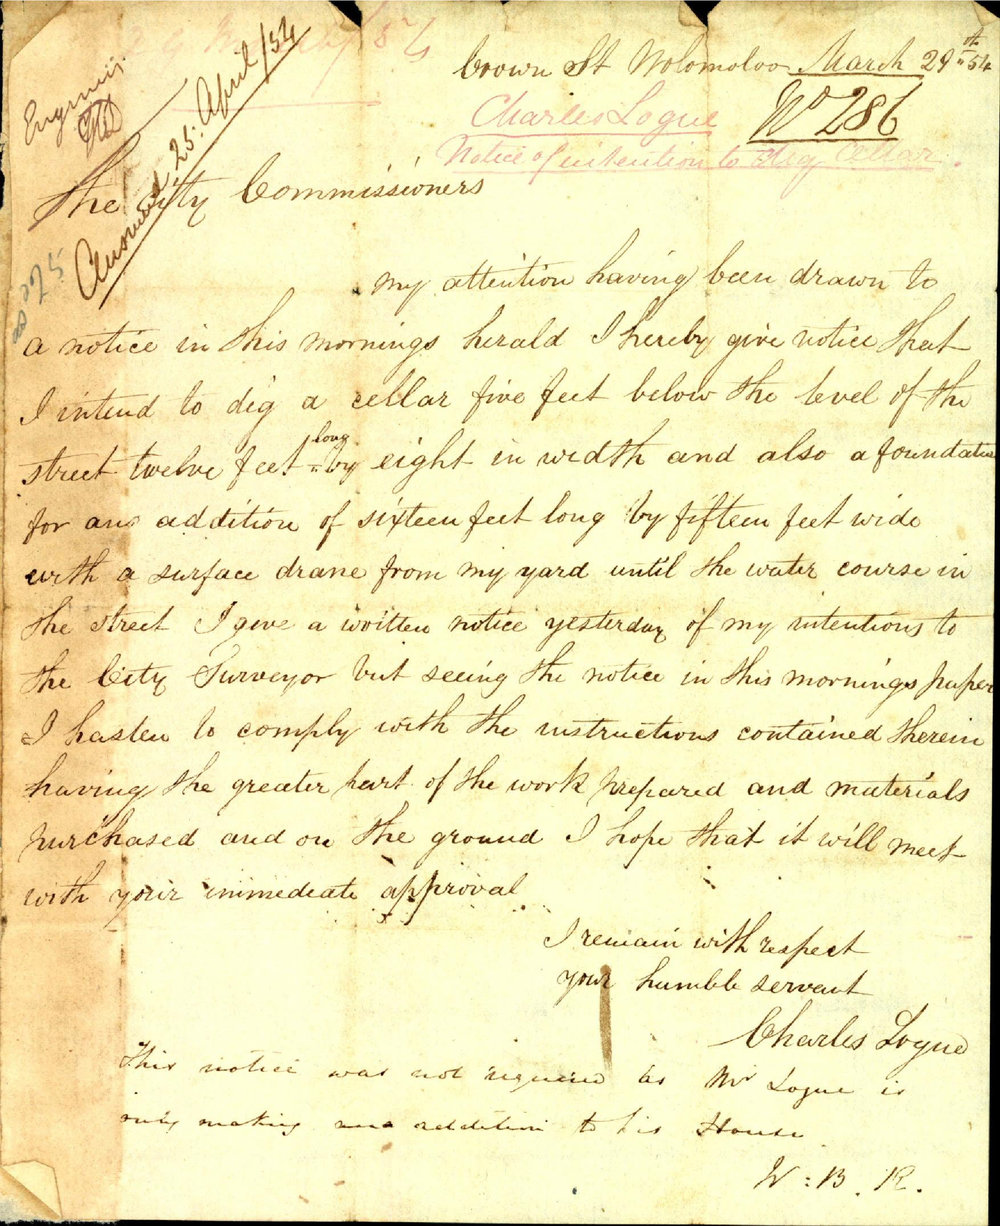 Crown St Wolomoloo March 29th "54
Charles Logue No 286
Notice of intention to dig cellar.
Answered 25. April/54
The City Commissioners
My attention having been drawn to
a notice in this mornings herald I hereby give notice that
I intend to dig a cellar five feet below the level of the
street twelve feet long by eight in width and also a foundation
for an addition of sixteen feet long by fifteen feet wide
with a surface drane from my yard until the water course in
the street I gave a written notice yesterday of my intentions to
the City Surveyor but seeing the notice in this mornings paper
I hasten to comply with the instructions contained therein
having the greater part of the work prepared and materials
purchased and on the ground I hope that it will meet
with your immediate approval
I remain with respect
your humble servant
Charles Logue
This notice was not required as Mr Logue is
only making an addition to his House
W : B . R .